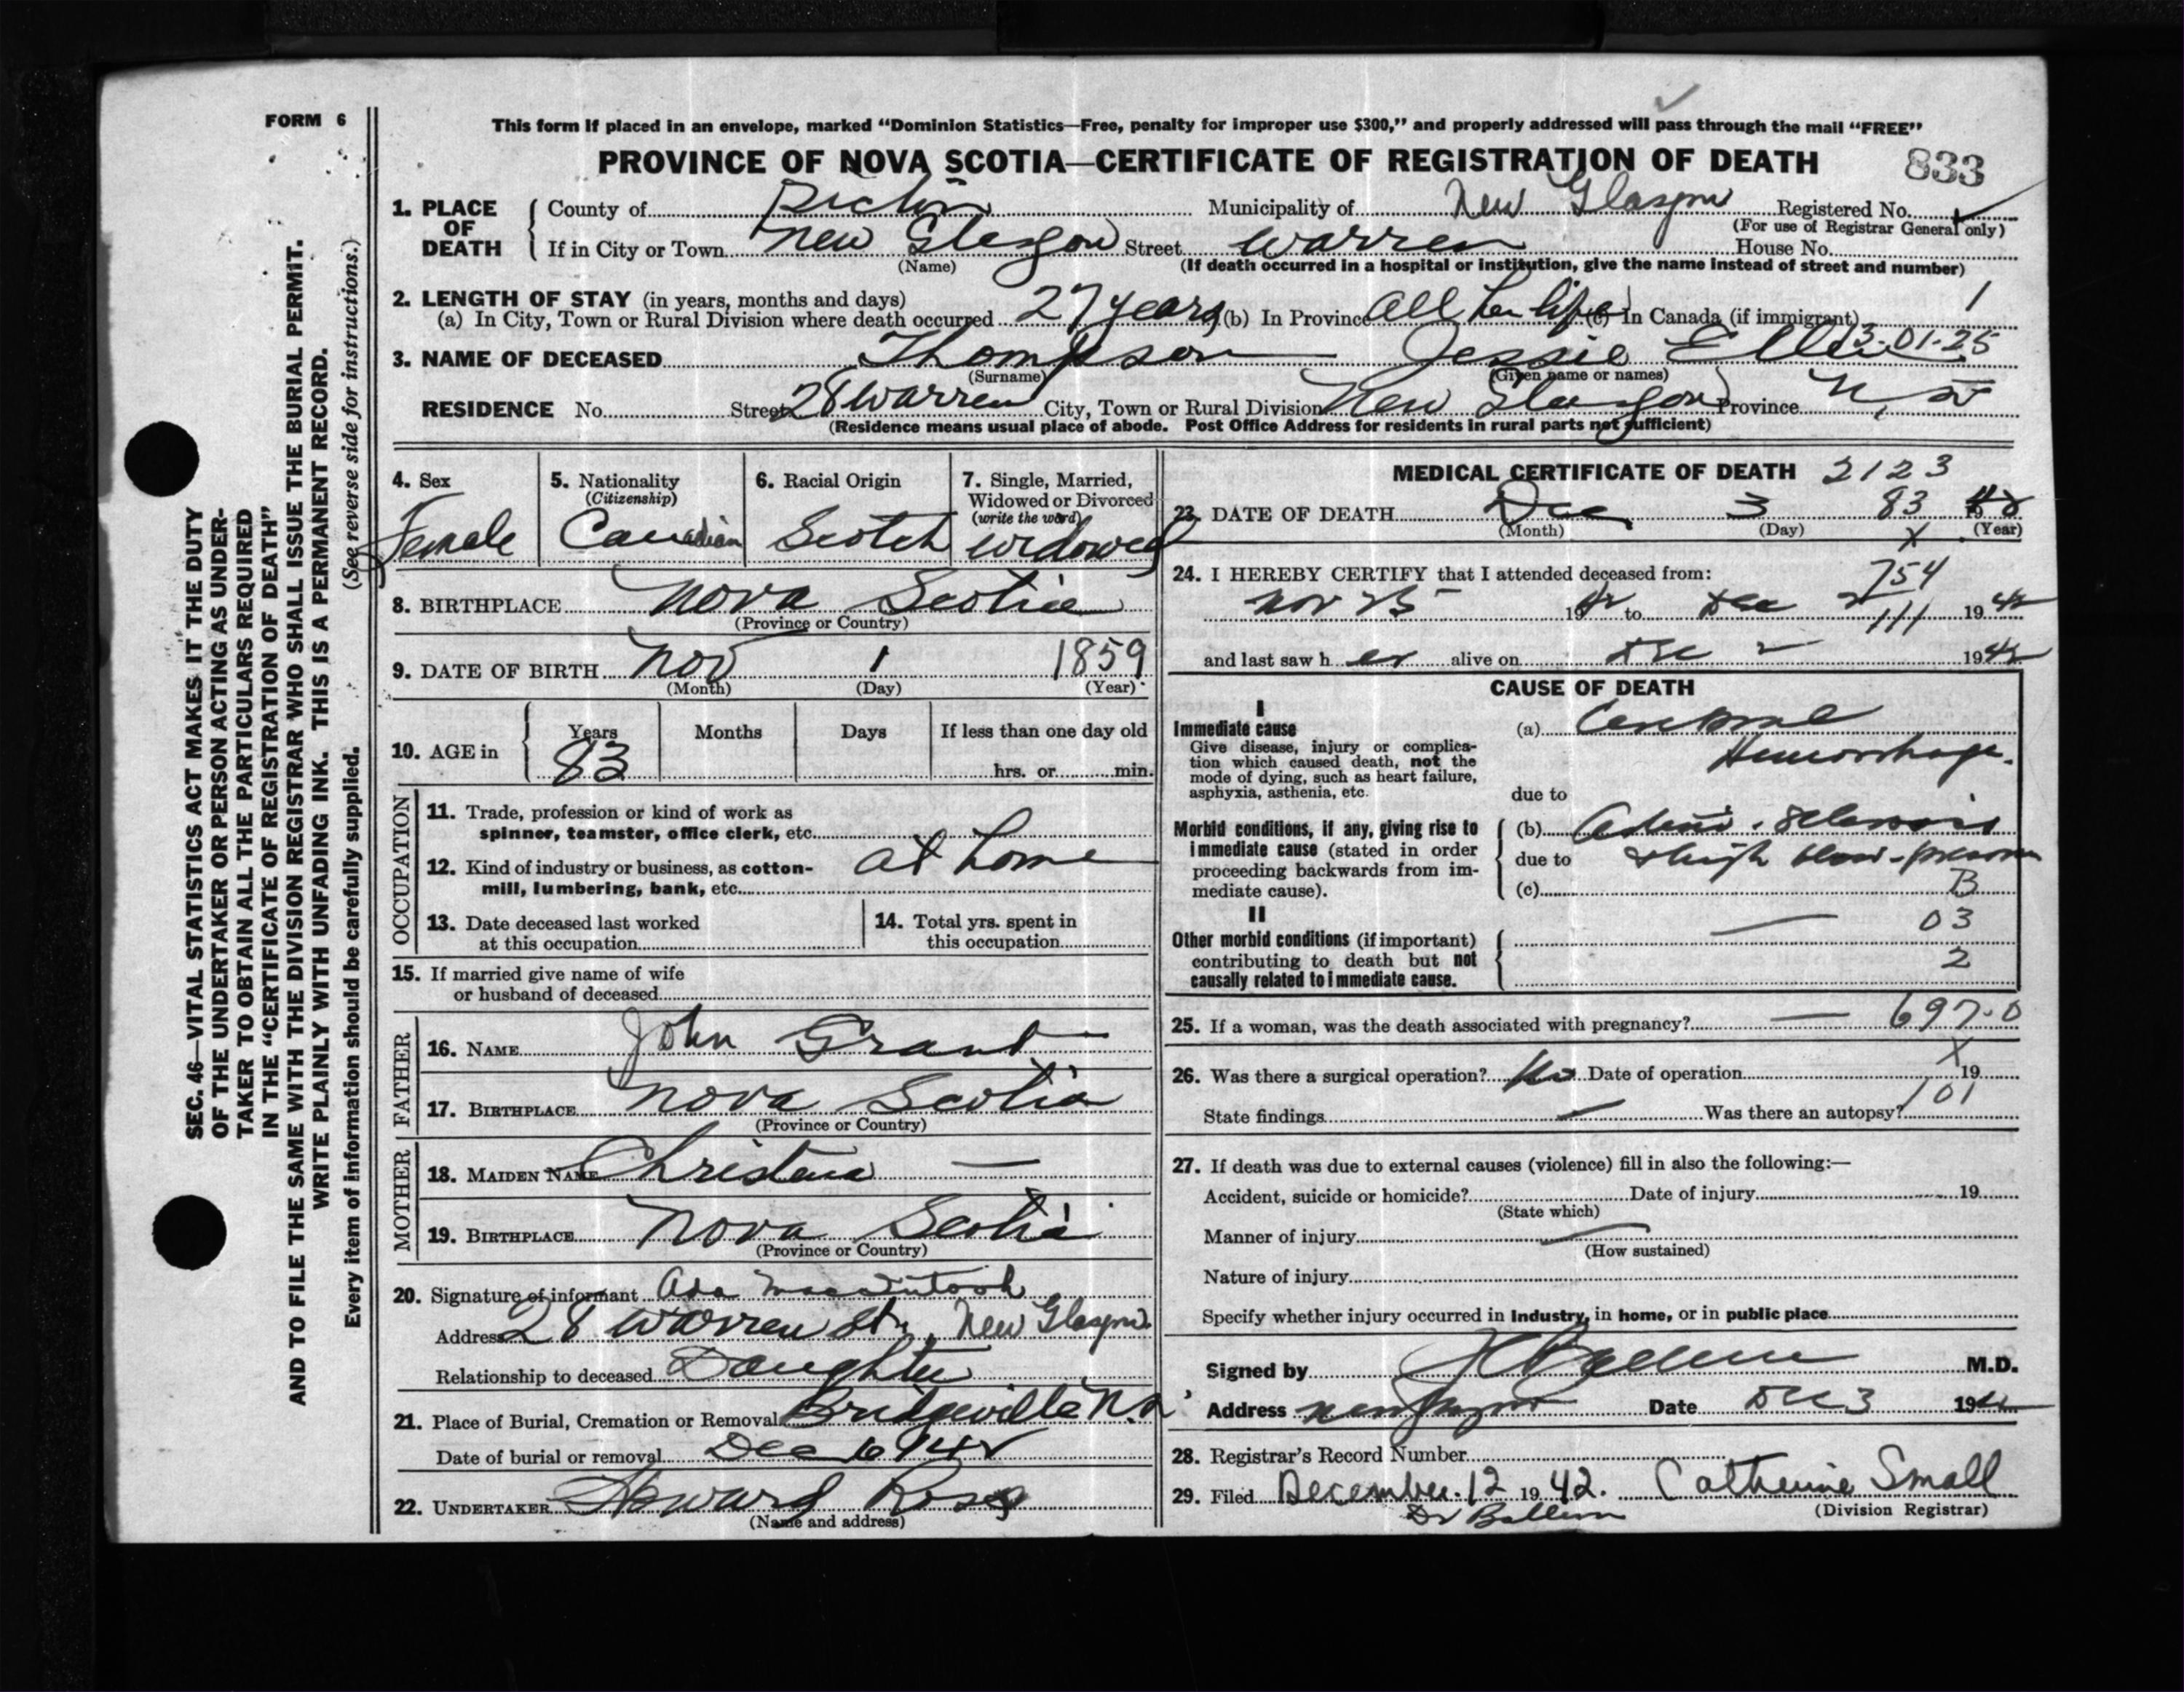 FORM 6
This form if placed in an envelope, marked “Dominion Statistics—Free, penalty for improper use $300,” and properly addressed will pass through the mail “FREE”
PROVINCE OF NOVA SCOTIA—CERTIFICATE OF REGISTRATION OF DEATH
833
1. PLACE OF DEATH
County of Pictou Municipality of New Glasgow Registered No.
(For use of Registrar General only)
If in City or Town New Glasgow Street Warren House No.
(Name) (If death occurred in a hospital or institution, give the name instead of street and number)
2. LENGTH OF STAY (in years, months and days) 1
(a) In City, Town or Rural Division where death occurred 27 years (b) In Province All her life (c) In Canada (if immigrant)
3. NAME OF DECEASED Thompson Jessie Ellen 3-01-25
(Surname) (Given name or names)
RESIDENCE No. Street 28 Warren City, Town or Rural Division New Glasgow Province N.S.
(Residence means usual place of abode. Post Office Address for residents in rural parts not sufficient)
4. Sex
Female
5. Nationality
(Citizenship)
Canadian
6. Racial Origin
Scotch
7. Single, Married,
Widowed or Divorced
(write the word)
Widowed
8. BIRTHPLACE Nova Scotia
(Province or Country)
9. DATE OF BIRTH Nov 1 1859
(Month) (Day) (Year)
10. AGE in
Years Months Days If less than one day old
83 hrs. or min.
OCCUPATION
11. Trade, profession or kind of work as
spinner, teamster, office clerk, etc.
12. Kind of industry or business, as cotton- at home
mill, lumbering, bank, etc.
13. Date deceased last worked
at this occupation
14. Total yrs. spent in
this occupation
15. If married give name of wife
or husband of deceased
FATHER
16. NAME John Grant
17. BIRTHPLACE Nova Scotia
(Province or Country)
MOTHER
18. MAIDEN NAME Christena —
19. BIRTHPLACE Nova Scotia
(Province or Country)
20. Signature of informant Ada MacIntosh
Address 28 Warren St., New Glasgow
Relationship to deceased Daughter
21. Place of Burial, Cremation or Removal Bridgeville N.S.
Date of burial or removal Dec 6 1942
22. UNDERTAKER Howard Ross
(Name and address)
MEDICAL CERTIFICATE OF DEATH 2123
23. DATE OF DEATH Dec 3 83 42
(Month) (Day) X (Year)
24. I HEREBY CERTIFY that I attended deceased from: 754
Nov 25 1942 to Dec 2 111 1942
and last saw her alive on Dec 2 1942
CAUSE OF DEATH
I
Immediate cause
Give disease, injury or complica-
tion which caused death, not the
mode of dying, such as heart failure,
asphyxia, asthenia, etc.
(a) Cerebral
Hemorrhage.
due to
Morbid conditions, if any, giving rise to
immediate cause (stated in order
proceeding backwards from im-
mediate cause).
(b) Arterio-sclerosis
due to & high blood-pressure
(c) B
II
Other morbid conditions (if important)
contributing to death but not
causally related to immediate cause.
— 03
2
25. If a woman, was the death associated with pregnancy? — 697-0
X
26. Was there a surgical operation? No Date of operation 19
State findings — Was there an autopsy? 101
27. If death was due to external causes (violence) fill in also the following:—
Accident, suicide or homicide? Date of injury 19
(State which)
Manner of injury —
(How sustained)
Nature of injury
Specify whether injury occurred in industry, in home, or in public place
Signed by Ballem M.D.
Address New Glasgow Date Dec 3 1942
28. Registrar's Record Number
29. Filed December 12 1942. Catherine Small
Dr Ballem (Division Registrar)
SEC. 46—VITAL STATISTICS ACT MAKES IT THE DUTY
OF THE UNDERTAKER OR PERSON ACTING AS UNDER-
TAKER TO OBTAIN ALL THE PARTICULARS REQUIRED
IN THE “CERTIFICATE OF REGISTRATION OF DEATH”
AND TO FILE THE SAME WITH THE DIVISION REGISTRAR WHO SHALL ISSUE THE BURIAL PERMIT.
WRITE PLAINLY WITH UNFADING INK. THIS IS A PERMANENT RECORD.
Every item of information should be carefully supplied. (See reverse side for instructions.)